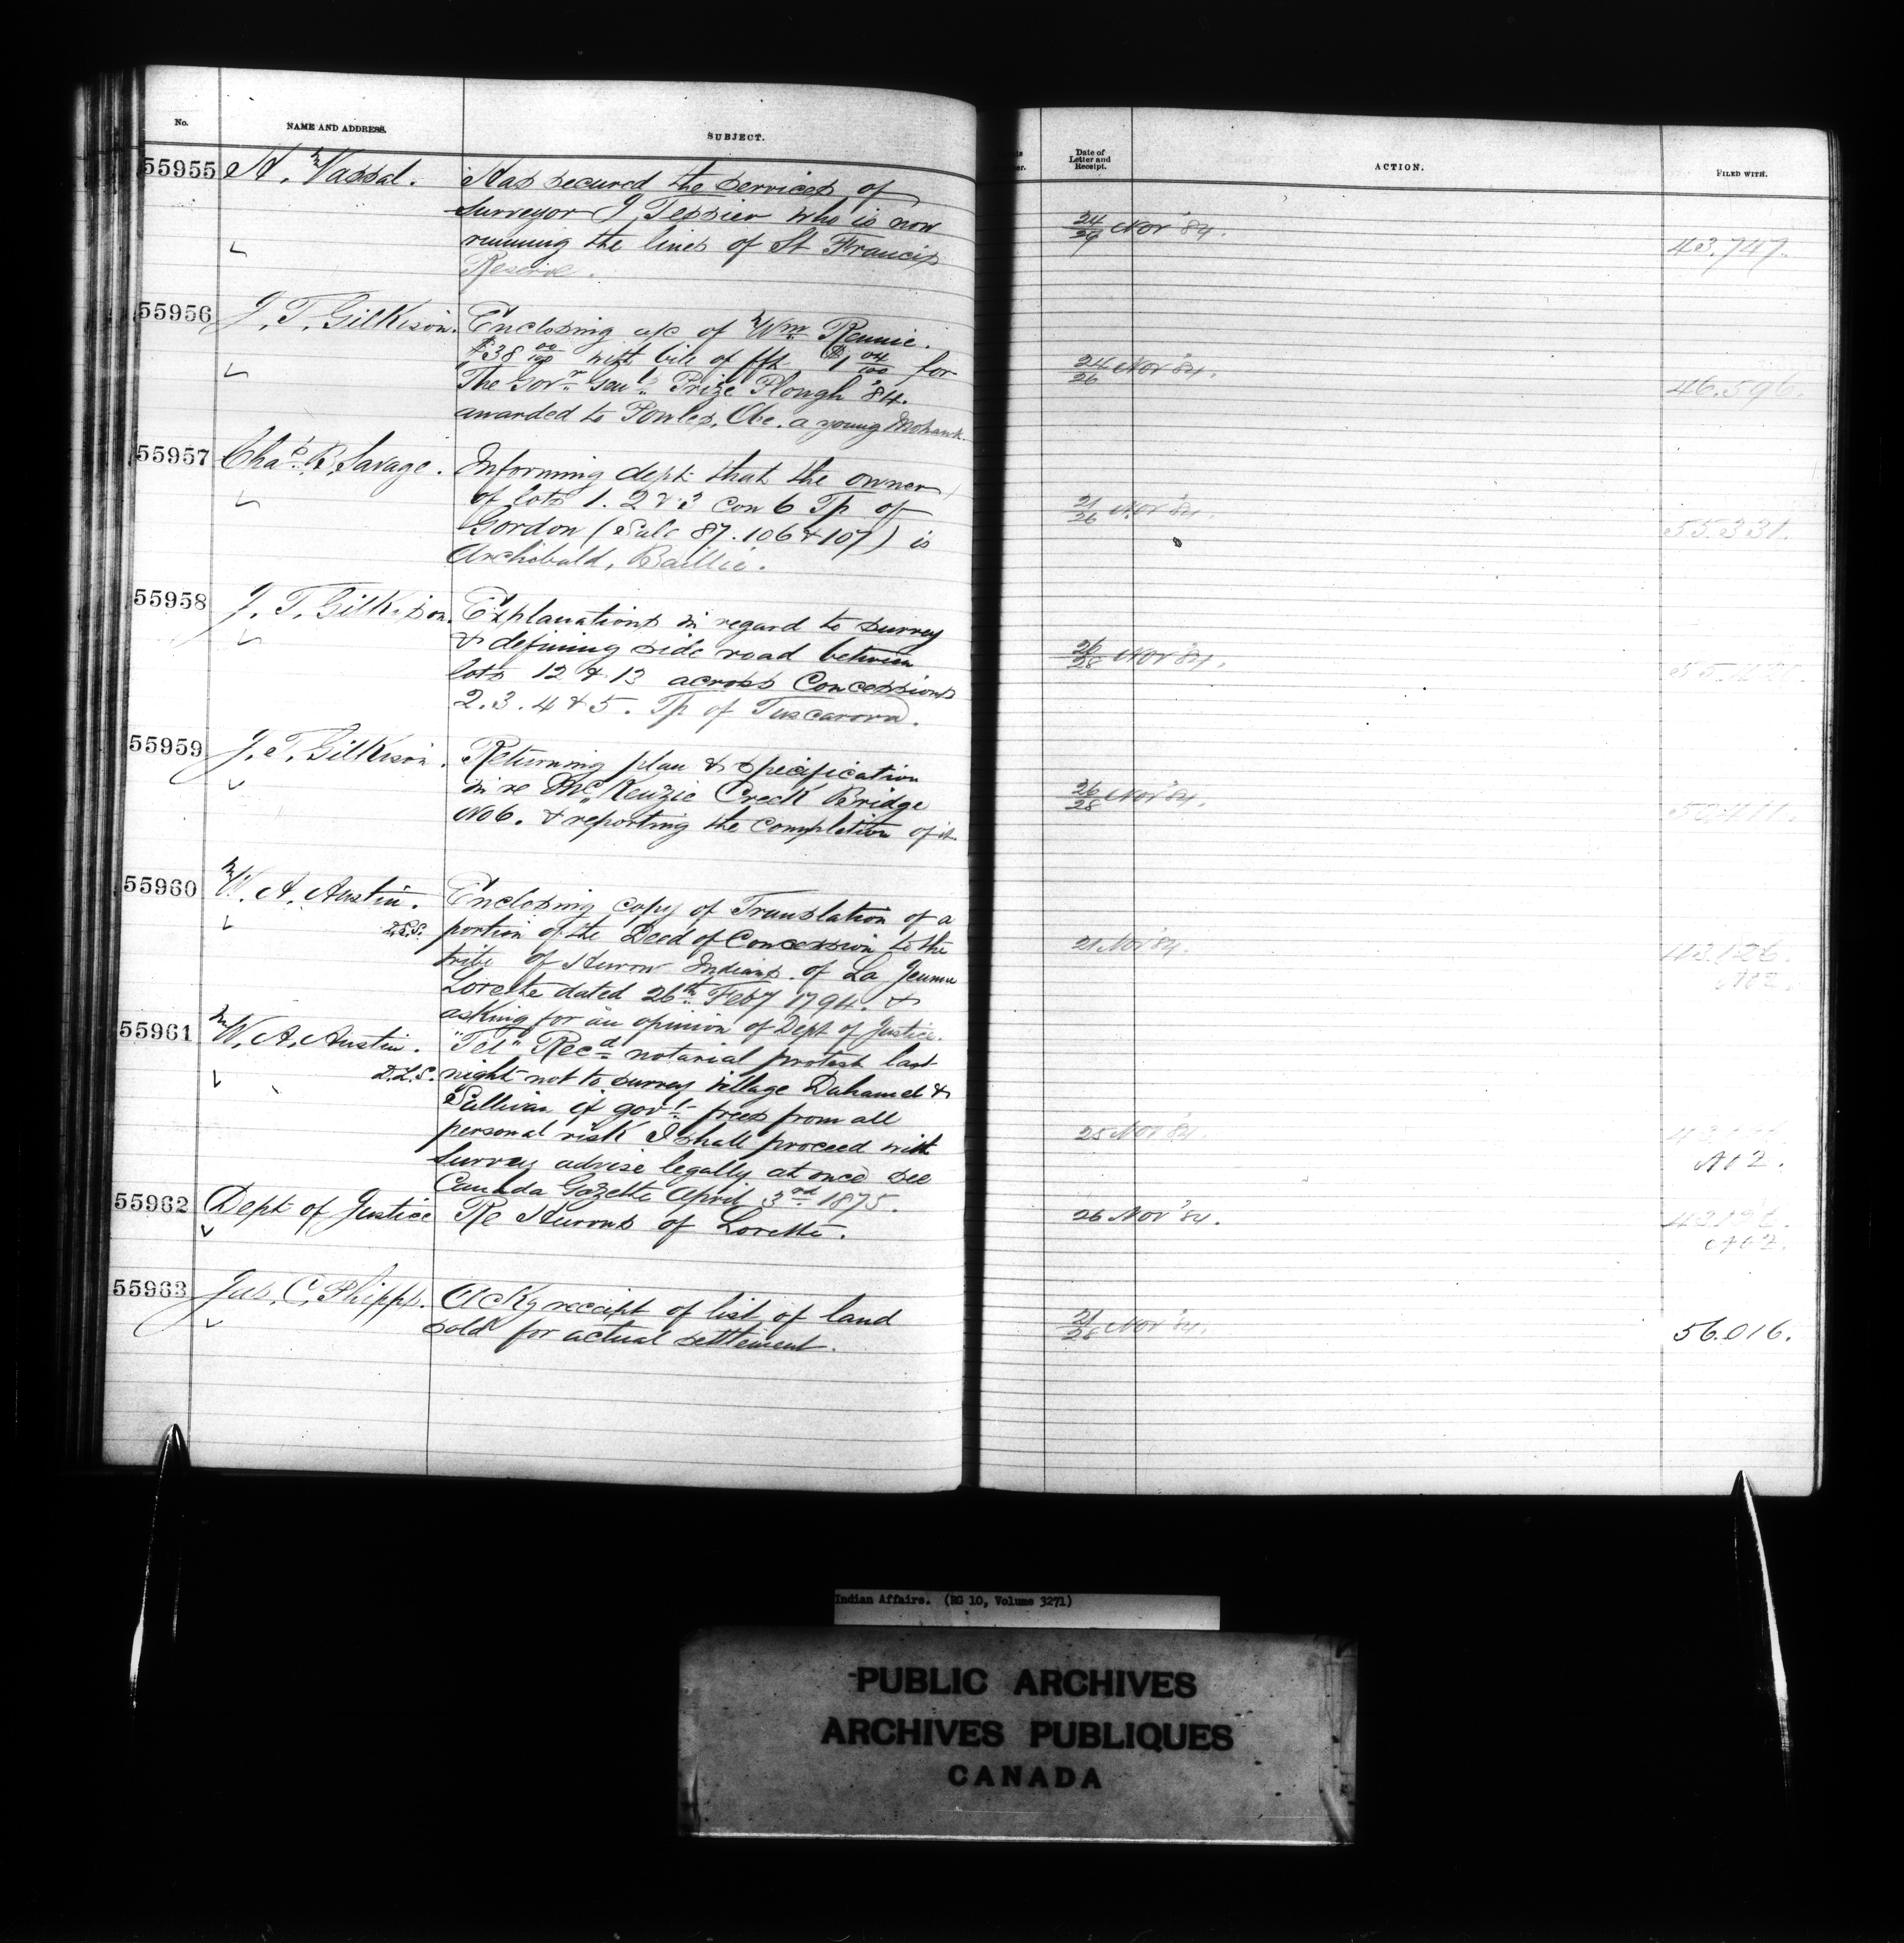 No.
NAME AND ADDRESS.
SUBJECT.
55955 H. Vassal. Has secured the services of
surveyor J. Tessier who is now
running the lines of St Francis
Reserve.
55956 J. T. Gilkison. Enclosing a/c of Wm Rennie.
$38 00/100 with bill of frt $1 04/100 for
The Govr Genl's Prize Plough '84.
awarded to Powles, Abe. a young Mohawk.
55957 Chas B. Savage. Informing dept that the owner
of lots 1. 2 & 3 con 6 Tp of
Gordon (Sale 87. 106 & 107) is
Archibald, Baillie.
55958 J. T. Gilkison. Explanations in regard to survey
& defining side road between
lots 12 & 13 across Concessions
2. 3. 4 & 5. Tp of Tuscarora.
55959 J. T. Gilkison. Returning plan & specification
in re McKenzie Creek Bridge
No 6. & reporting the completion of it
55960 W. A. Austin. Enclosing copy of Translation of a
D.L.S. portion of the Deed of Concession to the
tribe of Huron Indians of La Jeunne
Lorette dated 26th Feby 1794. &
asking for an opinion of Dept of Justice.
55961 W. A. Austin. "Tel" Recd notarial protest last
D.L.S. night not to survey village Duhamel &
Sullivan if govt frees from all
personal risk I shall proceed with
survey advise legally at once see
Canada Gazette April 3rd 1875.
55962 Dept of Justice Re Hurons of Lorette.
55963 Jas. C. Phipps. Ackg receipt of list of land
sold for actual settlement.
Date of
Letter and
Receipt.
ACTION.
FILED WITH.
24/29 Nov '84. 43.747.
24/26 Nov '84. 46.596.
21/26 Nov '84. 55.331.
26/28 Nov '84.
26/28 Nov '84.
21 Nov '84.
No 2.
25 Nov '84.
No 2.
26 Nov '84.
No 2.
21/28 Nov '84. 56.016.
Indian Affairs. (RG 10, Volume 3271)
PUBLIC ARCHIVES
ARCHIVES PUBLIQUES
CANADA